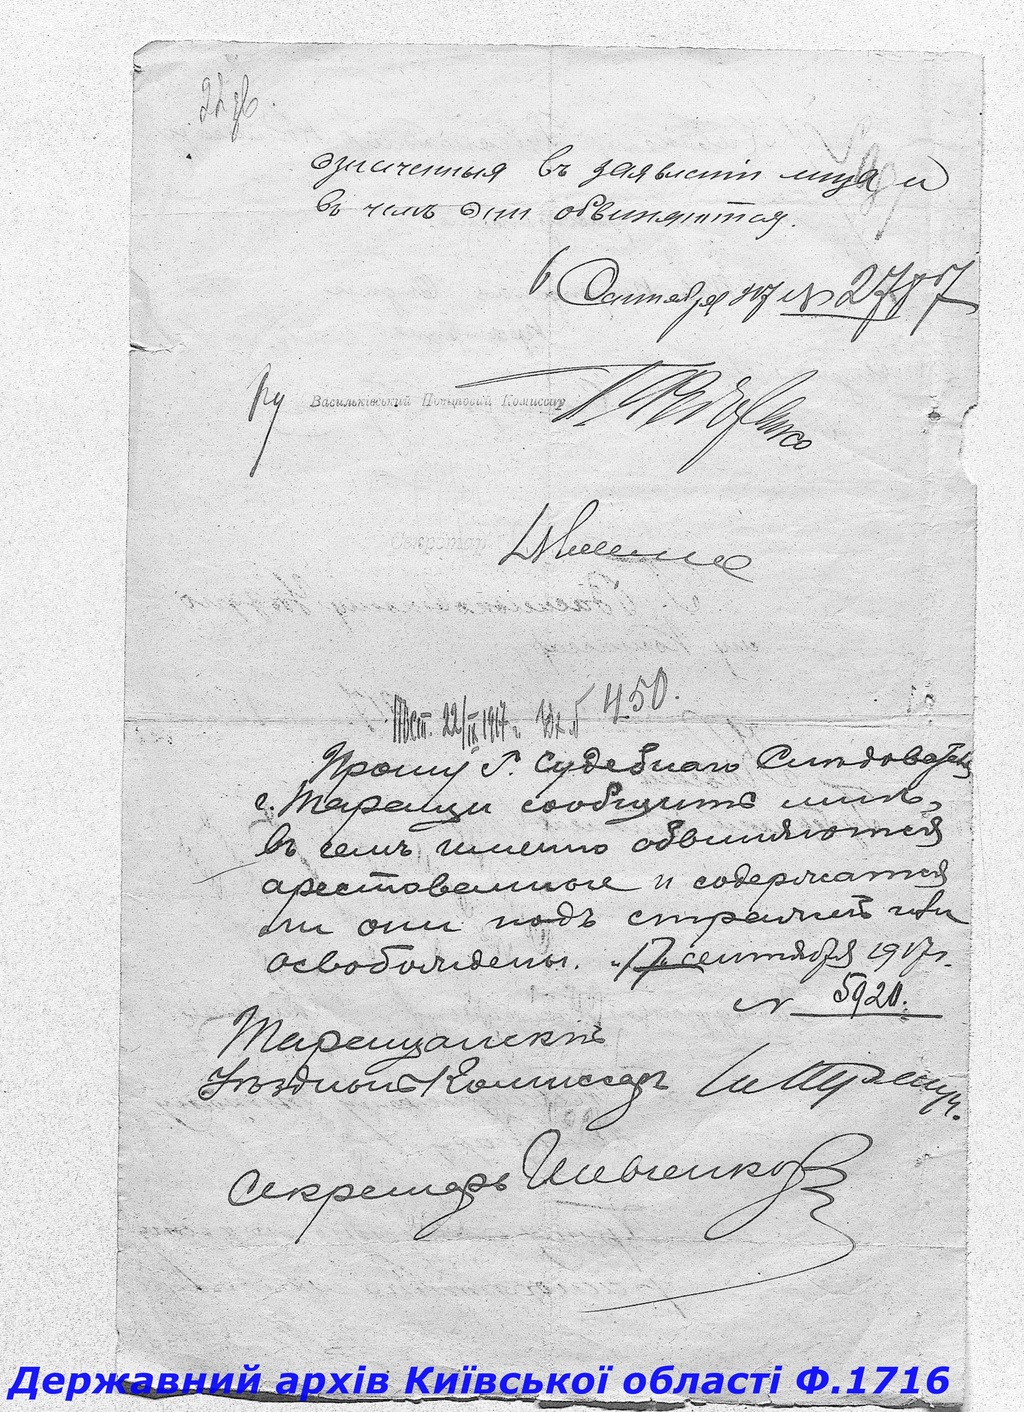 22 зв.
означенныя въ заявленіи лица и
въ чемъ они обвиняются.
6 Сентября 1917 № 2787
Васильківський Повітовий Комиссар
Секретар
Пост. 22/IX 1917 г. Вх. № 450.
Прошу Г. Судебнаго Следователя
г. Таращи сообщить мнѣ,
въ чемъ именно обвиняются
арестованные и содержатся
ли они подъ стражей или
освобождены. "17" сентября 1917 г.
№ 5920.
Таращанскій
Уѣздный Комиссаръ
Секретарь Шевченко
Державний архів Київської області Ф.1716